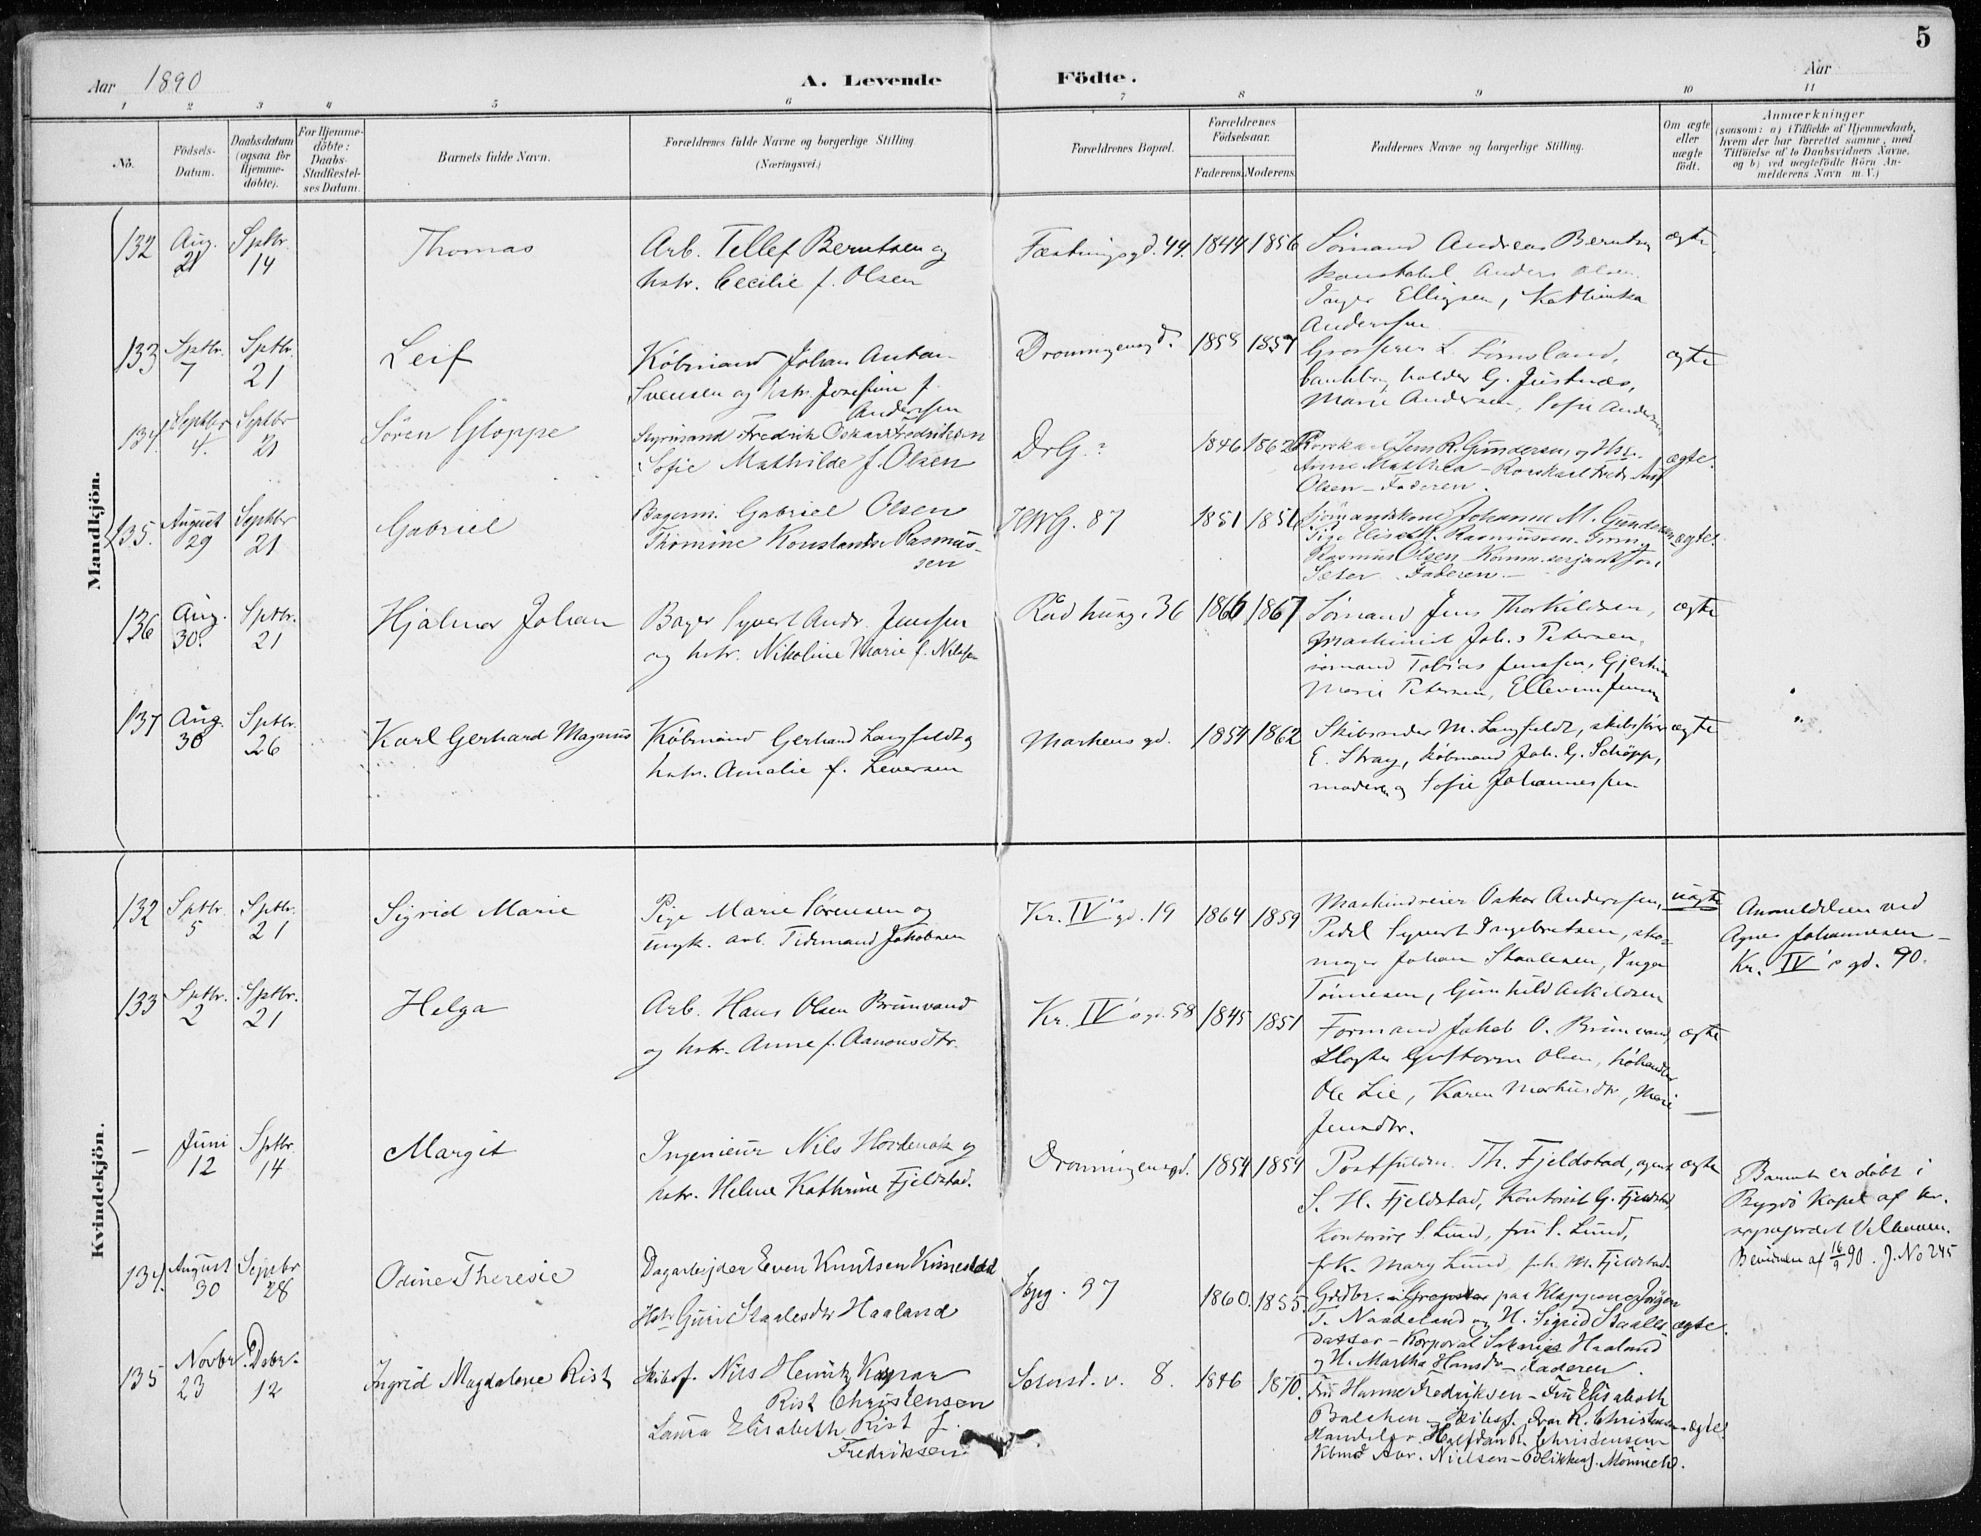 5
Aar 1890
A. Levende Födte.
Aar
1 2 3 4 5 6 7 8 9 10 11
No.
Födsels-Datum.
Daabsdatum (ogsaa for Hjemme-döbte).
For Hjemme-döbte: Daabs-Stadfæstel-ses Datum.
Barnets fulde Navn.
Forældrenes fulde Navne og borgerlige Stilling (Næringsvei.)
Forældrenes Bopæl.
Forældrenes Födselsaar.
Faderens. Moderens.
Faddernes Navne og borgerlige Stilling.
Om ægte eller uægte födt.
Anmærkninger
(saasom: a) i Tilfælde af Hjemmedaab,
hvem der har forrettet samme, med
Tilföielse af to Daabsvidners Navne.
og b) ved uægtefödte Börn An-
melderens Navn m. V.)
Mandkjön.
132 Aug. 21 Sptbr. 14 Thomas
Arb. Tellef Berntsen og
hstr. Cecilie f. Olsen
Fæstningsgd. 44. 1844 1856
Sømand Andreas Berntsen
konstabel Anders Olsen
Inger Elligsen, Kathinka
Anderssen
ægte
133 Sptbr. 7 Sptbr. 21 Leif
Købmand Johan Anton
Svensen og hstr. Josefine f.
Anderssen
Dronningensgd. 1858 1857
Grosserer L. Lømsland,
bankbogholder G. Justnæs,
Marie Andersen, Sofie Andersen
ægte
134. Septbr 4. Septbr 21 Sören Gloppe
Styrmand Fredrik Oskar Fredriksen
Sofie Mathilde f. Olsen
DrG. ? 1846 1862
Jens R. Gundersen og Hst.
Anne Mathea
Olsen – Faderen.
ægte.
135. August 29 Septbr 21 Gabriel
Bagerm. Gabriel Olsen
Thomine Konstanse Rasmus-
sen
HWG. 87 1851 1851
Sjömandskone Johanne M. Gundersen
Pige Elisabt. Rasmussen
Rasmus Olsen
Faderen –
ægte.
136 Aug. 30. Sptbr. 21 Hjalmar Johan
Bager Syvert Andr. Jenssen
og hstr. Nikoline Marie f. Nilssen
Rådhusg. 36 1866 1867
Sømand Jens Thorkildsen,
Maskinist Joh.s Petersen,
sømand Tobias Jenssen, Gjertine
Marie Petersen, Ellevine Jensen
ægte
137 Aug. 30 Sptbr. 26 Karl Gerhard Magnus
Købmand Gerhard Langfeldt og
hstr. Amalie f. Siversen
Markensgd. 1854 1862
Skibsreder M. Langfeldt, skibsfører
E. Stray, købmand Joh. G. Schöpp,
moderen og Sofie Johannessen
ægte
Kvindekjön.
132 Sptbr. 5 Sptbr. 21 Sigrid Marie
Pige Marie Sørensen og
ungk. arb. Tidemand Jakobsen
Kr. IV's gd. 19 1864 1859
Maskindreier Oskar Anderssen,
Pedel Syvert Ingebretsen, sko-
mager Johan Staalesen, Inga
Tønnesen, Gunhild Askildsen
uægte
Anmeldelsen ved
Agnes Johannesen –
Kr. IV's gd. 90.
133 Sptbr. 2 Sptbr. 21 Helga
Arb. Hans Olsen Brunvand
og hstr. Anne f. Aanonsdtr.
Kr. IV's gd. 58 1845 1851
Formand Jakob O. Brunvand,
Slagter Guttorm Olsen, høhandler
Ole Lie, Karen Markusdtr, Marie
Jensdtr.
ægte
– Juni 12 Sptbr. 14 Margit
Ingenieur Nils Hovdenak og
hstr. Helene Kathrine Fjeldstad.
Dronningensgd. 1854 1854
Postfuldm. Th. Fjeldstad, agent
S. H. Fjeldstad, Kontorist G. Fjeldstad,
Kontorist S. Lund, fru S. Lund,
frk. Mary Lund, frk. M. Fjeldstad.
ægte
Barnet er døbt i
Bygdø Kapel af kr.
Velhaven.
16/9 90. J. No 245
134. August 30 Septbr 28 Odine Theresie
Dagarbejder Even Knutsen Kimestad
Hstr Guri Staalesdtr Haaland
Stpg. 37 1860. 1855.
Grdbr. paa Jørgen
T. Naadeland og H. Sigrid Staales-
datter – Korporal Sakarias Haaland
og H. Martha Hansdtr – Faderen.
ægte.
135 Novbr. 23 Dcbr. 12 Ingrid Magdalene Rist
Skibsf. Nils Henrik Kaspar
Rist Christensen
Laura Elisabeth Rist f.
Fredriksen
Setersd. v. 8. 1846 1870.
Fru Hanne Fredriksen – Fru Elisabeth
Balchen – Skibsf. Ivar R. Christensen
Handelsr. Halfdan R. Christensen
Kbmd Aar. Nielsen –
ægte